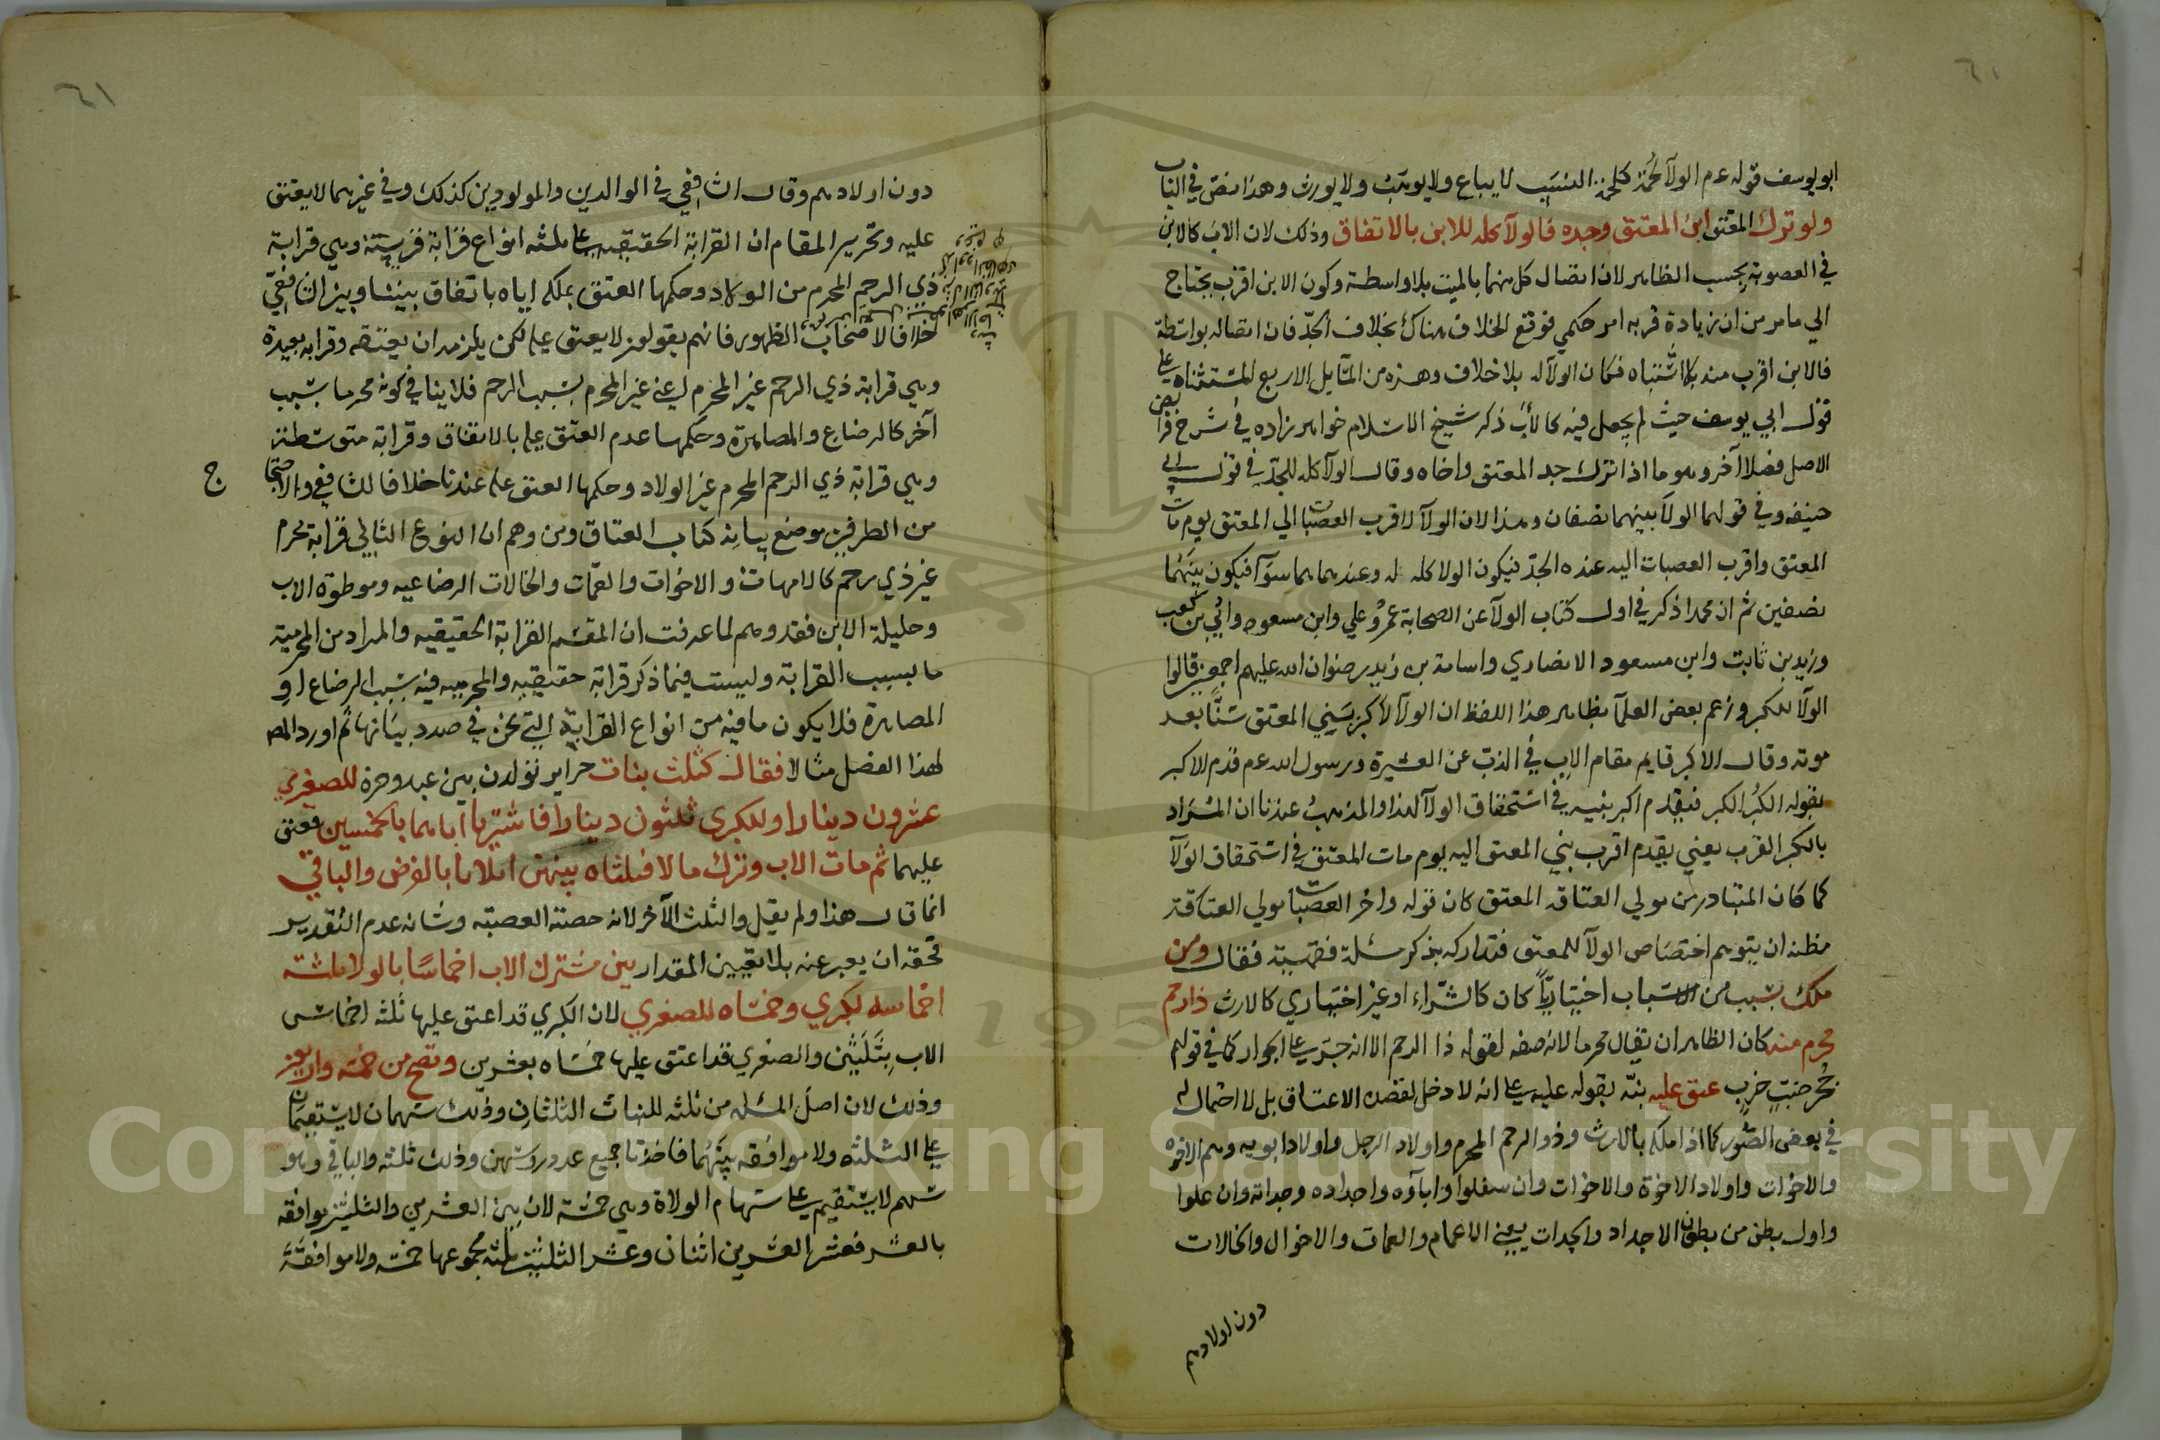 ابويوسف قوله عم الولآ لحمة كلحمة النسب لا يباع ولا يوهب ولا يورث وهذا نص في الباب
ولو ترك المعتق ابن المعتق وجده فالولآ كله للابن بالاتفاق وذلك لان الاب كالابن
في العصوبة بحسب الظاهر لان اتصال كل منهما بالميت بلا واسطة وكون الابن اقرب يحتاج
الي ما مر من ان زيادة قربه امر حكمي فوقع الخلاف هناك بخلاف الجد فان اتصاله بواسطة
فالابن اقرب منه بلا اشتباه فكان الولآ له بلا خلاف وهذه من المسآيل الاربع المستثناه علي
قول ابي يوسف حيث لم يجعل فيه كالاب ذكر شيخ الاسلام خواهر زاده في شرح فرايض
الاصل فصلا آخر وهو ما اذا ترك جد المعتق واخاه وقال الولآ كله للجد في قول ابي
حنيفه وفي قولهما الولآ بينهما نصفان وهذا لان الولآ لاقرب العصبات الي المعتق يوم مات
المعتق واقرب العصبات اليه عنده الجد فيكون الولا كله له وعندهما هما سوآ فيكون بينهما
نصفين ثم ان محمدا ذكر في اول كتاب الولآ عن الصحابة عمر وعلي وابن مسعود وابي بن كعب
وزيد بن ثابت وابن مسعود الانصاري واسامة بن زيد رضوان الله عليهم اجمعين قالوا
الولآ للكبر وزعم بعض العلمآ بظاهر هذا اللفظ ان الولآ لاكبر بني المعتق سنا بعد
موته وقال الاكبر قايم مقام الاب في الذب عن العشيرة ورسول الله عم قدم الاكبر
بقوله الكبر الكبر فيقدم اكبر بنيه في استحقاق الولآ لهذا والمذهب عندنا ان المراد
بالكبر القرب يعني يقدم اقرب بني المعتق اليه يوم مات المعتق في استحقاق الولآ
كما كان المتبادر من مولي العتاقه المعتق كان قوله واخر العصبات مولي العتاقة
مظنه ان يتوهم اختصاص الولآ للمعتق فتداركه بذكر مسئلة فقال ومن
ملك بسبب من الاسباب اختياريا كان كالشراء او غير اختياري كالارث ذا رحم
محرم منه كان الظاهر ان يقال محرما لانه صفه لقوله ذا الرحم الا انه جر علي الجوار كما في قولهم
جحر ضب خرب عتق عليه نبه بقوله عليه علي انه لا دخل لقصده الاعتاق بل لا احتمال له
في بعض الصور كما اذا ملكه بالارث وذو الرحم المحرم اولاد الرجل واولاد ابويه وهم الاخوه
والاخوات واولاد الاخوة والاخوات وان سفلوا وابآؤه واجداده وجداته وان علوا
واول بطن من بطون الاجداد والجدات يعني الاعمام والعمات والاخوال والخالات
دون اولادهم
دون اولادهم وقال الشافعي في الوالدين والمولودين كذلك وفي غيرهما لا يعتق
عليه وتحرير المقام ان القرابة الحقيقيه علي ثلثه انواع قرابة قريبة وهي قرابة
ذي الرحم المحرم من الولاد وحكمها العتق بملكه اياه باتفاق بيننا وبين الشافعي
خلافا لاصحاب الظهور فانهم يقولون لا يعتق عليه لكن يلزمه ان يعتقه وقرابه بعيدة
وهي قرابة ذي الرحم غير المحرم يعني غير المحرم بسبب الرحم فلا ينافي كونه محرما بسبب
آخر كالرضاع والمصاهرة وحكمها عدم العتق عليه بالاتفاق وقرابة متوسطة
وهي قرابة ذي الرحم المحرم غير الولاد وحكمها العتق عليه عندنا خلافا للشافعي والاحتجاج
من الطرفين موضع بيانه كتاب العتاق ومن وهم ان النوع الثاني قرابة محرم
غير ذي رحم كالامهات والاخوات والعمات والخالات الرضاعيه وموطوة الاب
وحليلة الابن فقد وهم لما عرفت ان المقسم القرابة الحقيقيه والمراد من المحرمية
ما بسبب القرابة وليست فيما ذكر قرابة حقيقيه والمحرميه فيه بسبب الرضاع او
المصاهرة فلا يكون ما فيه من انواع القرابة التي نحن في صدد بيانها ثم اورد المص
لهذا الفصل مثالا فقال كثلث بنات حراير تولدن بين عبد وحرة للصغري
عشرون دينارا وللكبري ثلثون دينارا فاشتريا اباهما بالخمسين فعتق
عليهما ثم مات الاب وترك مالا فثلثاه بينهن اثلاثا بالفرض والباقي
انما قال هذا ولم يقل والثلث الآخر لانه حصة العصبة وشانه عدم التقدير
فحقه ان يعبر عنه بلا تعيين المقدار بين مشتري الاب اخماسا بالولا ثلثة
اخماسه للكبري وخمساه للصغري لان الكبري قد اعتق عليها ثلثه اخماس
الاب بثلثين والصغري قد اعتق عليها خمساه بعشرين وتصح من خمسه واربعين
وذلك لان اصل المسئله من ثلثه للبنات الثلثان وذلك سهمان لا يستقيمان
علي الثلثه ولا موافقه بينهما فاخذنا جميع عدد روسهن وذلك ثلثه والباقي وهو
سهم لا يستقيم علي سهام الولاة وهي خمسة لان بين العشرين والثلثين موافقه
بالعشر فعشر العشرين اثنان وعشر الثلثين ثلثه مجموعها خمسه ولا موافقة